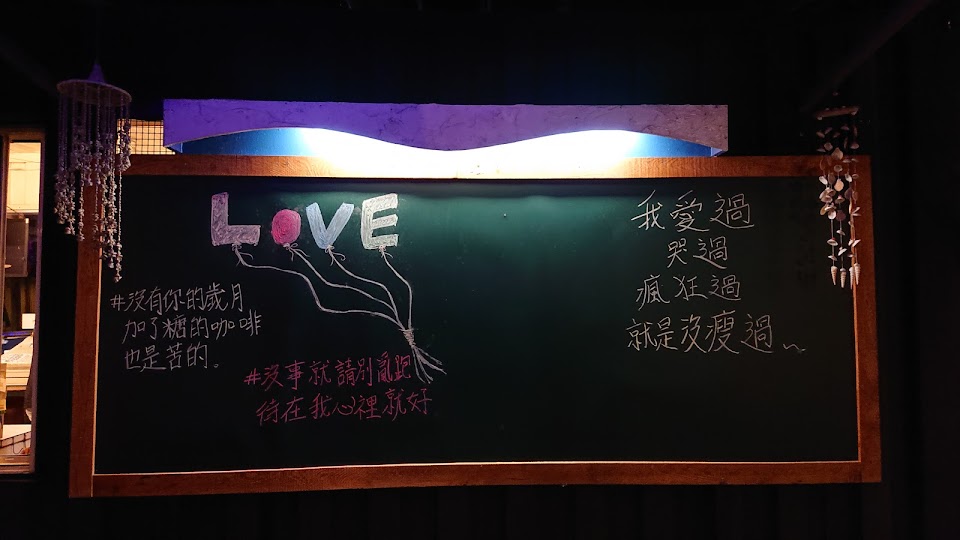 LOVE
#沒有你的歲月
加了糖的咖啡
也是苦的。
#沒事就請別亂跑
待在我心裡就好
我愛過
哭過
瘋狂過
就是沒瘦過~